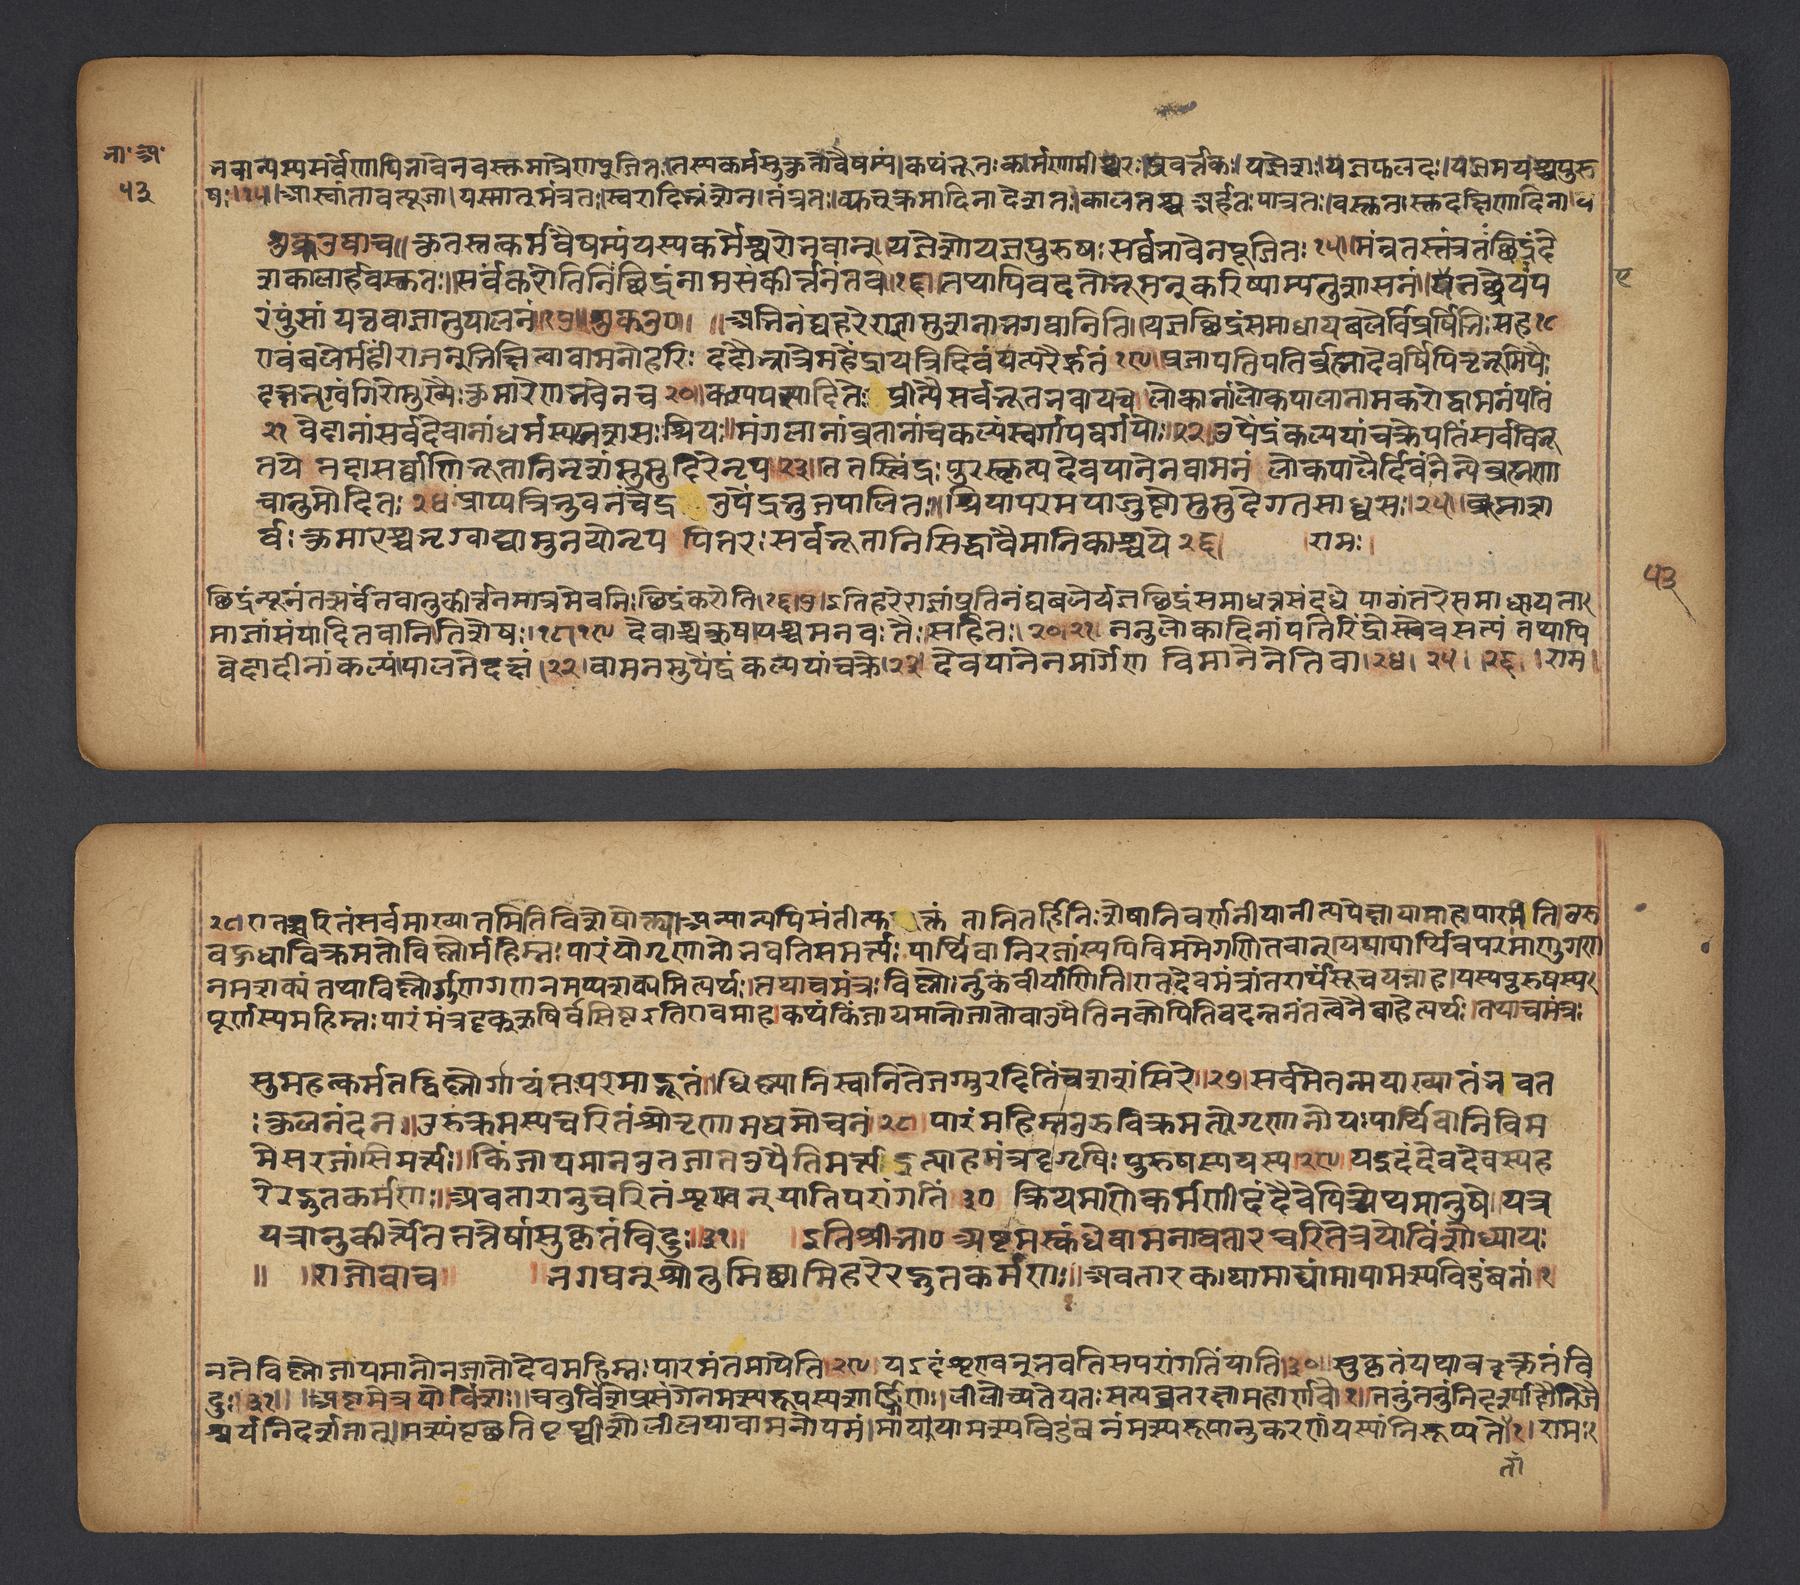 भा॰ अ॰
५३
भवान्यस्यसर्वेणापिभावेनवस्तुमात्रेणपूजितः।तस्यकर्मसुकुतोवैषम्यं।कथंभूतः।कर्मणामीश्वरः।प्रवर्त्तकः।यज्ञेशः।यज्ञफलदः।यज्ञमयश्चपुरु
षः।।१५।।आस्तांतावत्पूजा।यस्मात्मंत्रतः।स्वरादिभ्रंशेन।तंत्रतः।व्युत्क्रमादिना।देशतः।कालतश्च।अर्हतः।पात्रतः।वस्तुतः।दक्षिणादिना।य
शुक्रउवाच।।कुतस्तत्कर्मवैषम्यंयस्यकर्मेश्वरोभवान्।यज्ञेशोयज्ञपुरुषः।सर्वभावेनपूजितः।१५।मंत्रतस्तंत्रतश्छिद्रंदे
शकालार्हवस्तुतः।।सर्वंकरोतिनिश्छिद्रंनामसंकीर्त्तनंतव।।१६।।तथापिवदतोभूमन्करिष्याम्यनुशासनं।।एतच्छ्रेयःप
रंपुंसांयत्तवाज्ञानुपालनं।।१७।।शुकउ०। ।।अभिनंद्यहरेराज्ञामुशनाभगवानिति।।यज्ञछिद्रंसमाधायबलेर्विप्रर्षिभिःसह।१८
एवंबलेर्महींराजन्भिक्षित्वावामनोहरिः ददौभ्रात्रेमहेंद्रायत्रिदिवंयत्परैर्हृतं।१९।प्रजापतिपतिर्ब्रह्मादेवर्षिपितृभूमिपैः
दक्षभृग्वंगिरोमुख्यैःकुमारेणभवेनच२०।कश्यपस्यादितेःप्रीत्यैसर्वभूतभवायच।लोकानांलोकपालानामकरोद्वामनंपतिं
२१वेदानांसर्वदेवानांधर्मस्ययशसःश्रियः।।मंगलानांव्रतानांचकल्पंस्वर्गापवर्गयोः।।२२।उपेंद्रंकल्पयांचक्रेपतिंसर्वविभू
तये तदासर्वाणिभूतानिभृशंमुमुदिरेनृप२३।ततस्त्विंद्रःपुरस्कृत्यदेवयानेनवामनं लोकपालैर्दिवंनिन्येब्रह्मणा
चानुमोदितः२४प्राप्यत्रिभुवनंचेंद्र उपेंद्रभुजपालितः।।श्रियापरमयाजुष्टोमुमुदेगतसाध्वसः।२५।।ब्रह्माश
र्वःकुमारश्चभृग्वाद्यामुनयोनृप पितरःसर्वभूतानिसिद्धावैमानिकाश्चये२६। ।रामः।
छिद्रंन्यूनंतत्सर्वंतवानुकीर्त्तनमात्रमेवनिःछिद्रंकरोति।।१६।१७।इतिहरेराज्ञांप्रतिनंद्यबलेर्यज्ञछिद्रंसमाधत्तसंदधे पाठांतरेसमाधायता
माज्ञांसंपादितवानितिशेषः।।१८।१९ देवाश्चऋषयश्चमनवःतैःसहितः।।२०।२१ ननुलोकादिनांपतिरिंद्रोस्त्येवसत्यं तथापि
वेदादीनांकल्पं।पालनेदक्षं।२२।वामनमुपेंद्रंकल्पयांचक्रे।२३।देवयानेनमार्गेण विमानेनेतिवा।२४। २५। ।२६। ।राम।
५३
२८एतच्चरितंसर्वमाख्यातमितिविशेषोक्त्याअन्यान्यपिसंतीत्युक्तं तानितर्हिनिःशेषानिवर्णनीयानीत्यपेक्षायामाह।पारमिति।उरु
वहुधाविक्रमतोविष्णोर्महिम्नःपारंयोगृणानोभवतिसमर्त्यः।पार्थिवानिरजांस्यपिविममेगणितवान्।यथापार्थिवपरमाणुगण
नमशक्यंतथाविष्णोर्गुणगणनमप्यशक्यमित्यर्थः।तथाचमंत्रः।विष्णोर्नुकंवीर्याणीति।एतदेवमंत्रांतरार्थंसूचयन्नाह।यस्यपुरुषस्य
पूर्णस्यमहिम्नःपारंमंत्रदृक्ऋषिर्वसिष्ठइतिएवमाह।कथंकिंजायमानोजातोवाउपैतिनकोपितिवदन्ननंतत्वेनैवाहेत्यर्थः।तथाचमंत्रः
सुमहत्कर्मतद्विष्णोर्गायंतःपरमाद्भुतं।।धिष्ण्यानिस्वानितेजग्मुरदितिंचशशंसिरे।।२७।सर्वमेतन्मयाख्यातंभवत
ःकुलनंदन।।उरुक्रमस्यचरितंश्रोतॄणामघमोचनं।२८।पारंमहिम्नउरुविक्रमतोगृणानोयःपार्थिवानिविम
मेसरजांसिमर्त्यः।।किंजायमानउतजातउपैतिमर्त्यइत्याहमंत्रदृगृषिःपुरुषस्ययस्य।२९।यइदंदेवदेवस्यह
रेरद्भुतकर्मणः।।अवतारानुचरितंशृण्वन्यातिपरांगतिं ३० क्रियमाणेकर्मणीदंदैवेपित्र्येथमानुषे।यत्र
यत्रानुकीर्त्येततत्तेषांसुकृतंविदुः।।३१।। ।इतिश्रीभा०अष्टमस्कंधेवामनावतारचरितेत्रयोविंशोध्यायः
।। ।।राजोवाच।। ।भगवन्श्रोतुमिच्छामिहरेरद्भुतकर्मणः।।अवतारकथामाद्यांमायामत्स्यविडंबनां१
नतेविष्णोजायमानोनजातोदेवमहिम्नःपारमंतमापेति।२९। यइदंशृण्वन्भवतिसपरांगतिंयाति।३०।।सुकृतंयथावत्कृतंवि
दुः।३१।।।अष्टमेत्रयोविंशः।।चतुर्विंशेप्रसंगेनमत्स्यरूपस्यशार्ङ्गिणः।लीलोच्यतेयतःसत्यव्रतरक्षामहार्णवे।१।
श्चर्यनिदर्शनात्।मत्स्यंपृच्छतिपृथ्वीशोलीलयावामनोपमं।मायामत्स्यविडंबनंमत्स्यरूपानुकरणंयस्यांनिरूप्यते।१।रामः
तां